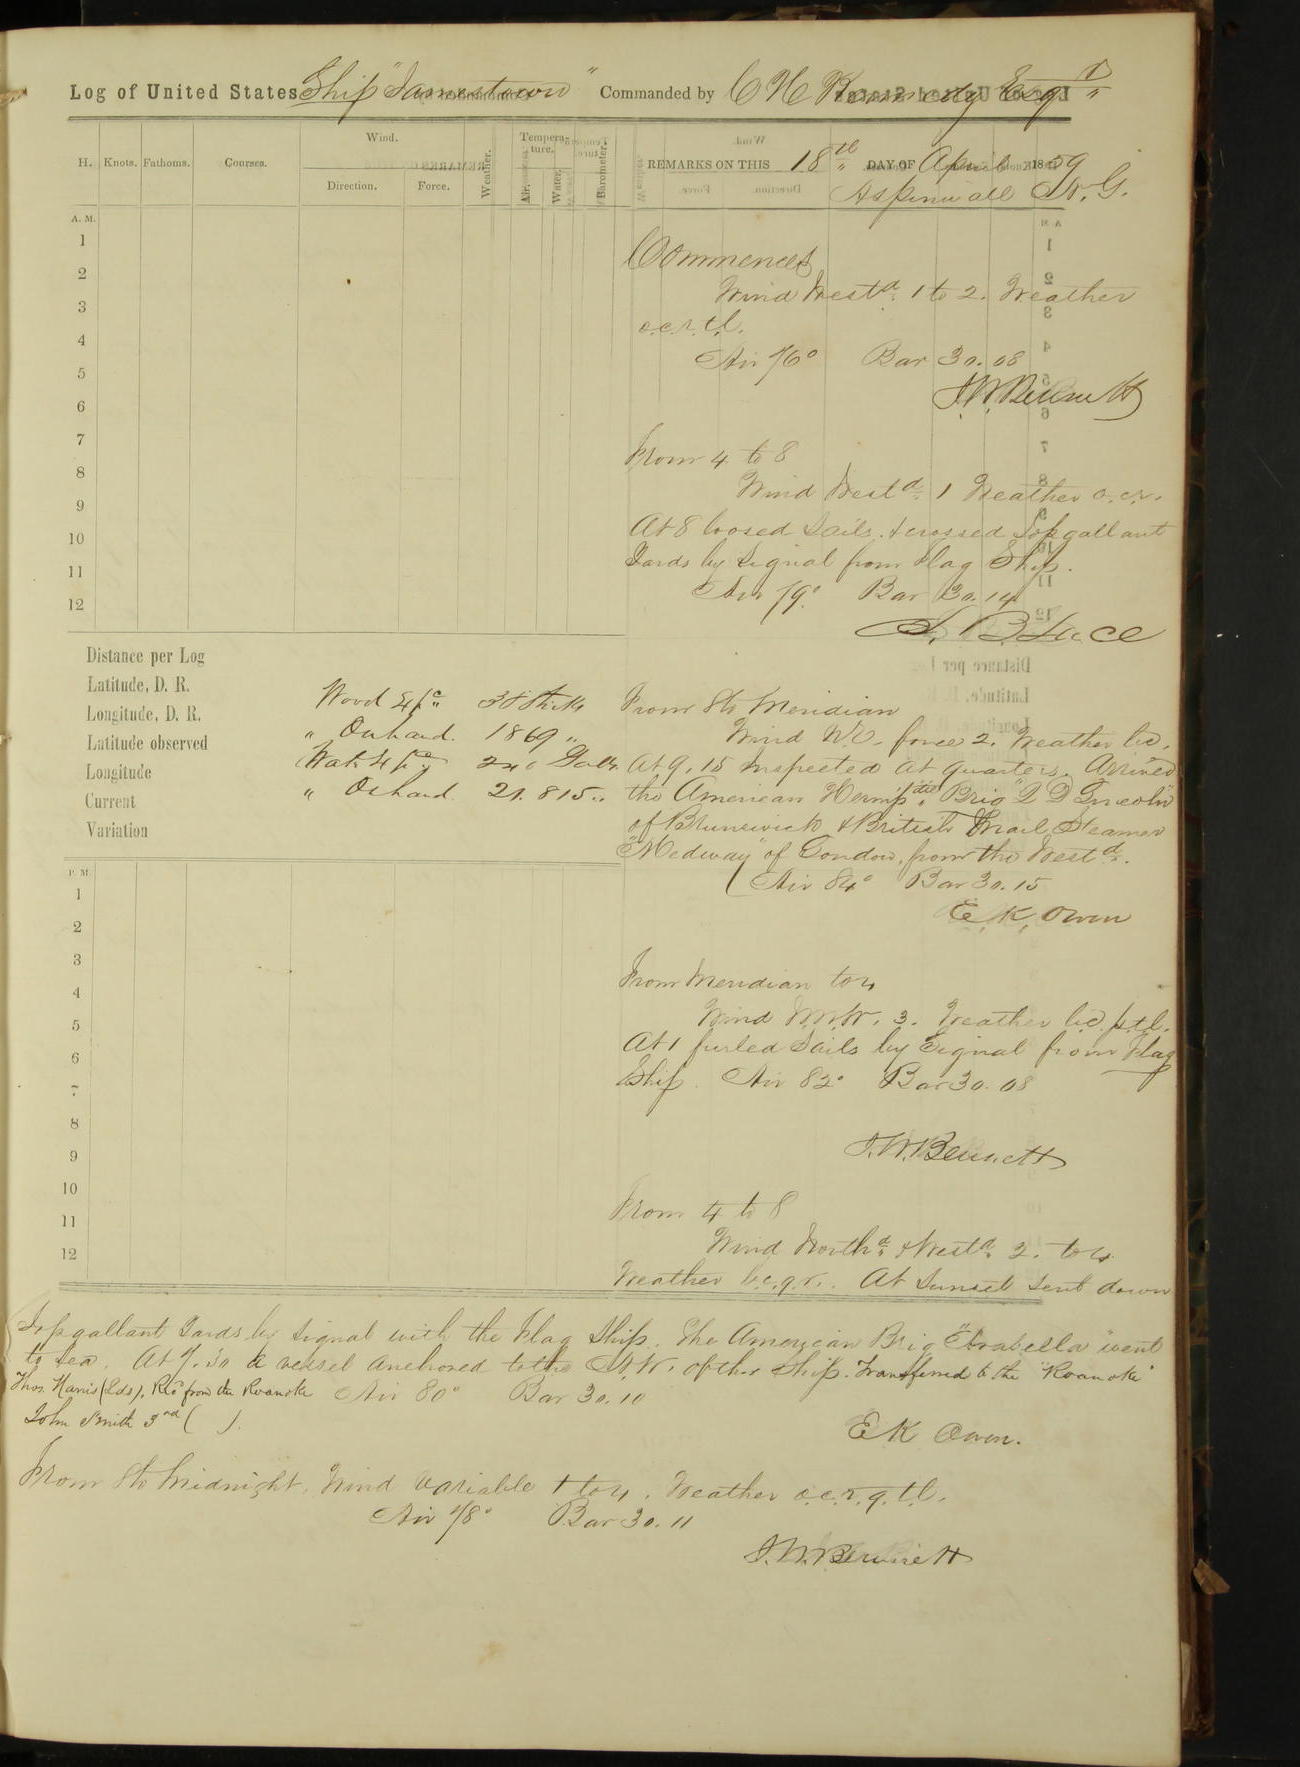 Log of United States Ship "Jamestown" Commanded by C H Kennedy Esqr
H. Knots. Fathoms. Courses. Wind. Direction. Force. Weather. Tempera-ture. Air. Water. Barometer. REMARKS ON THIS 18th DAY OF April 1859
Aspinwall N. G.
A. M.
1
2
3
4
5
6
7
8
9
10
11
12
Commences
Wind Westd. 1 to 2. Weather
o.c.r.t.l.
Air 76° Bar 30.08
J. W. Bennett
From 4 to 8
Wind Westd. 1 Weather o.c.r.
At 8 loosed Sails. & crossed Topgallant
Yards by Signal from Flag Ship.
Air 79° Bar 30.14
S. B. Luce
Distance per Log
Latitude, D. R.
Longitude, D. R.
Latitude observed
Longitude
Current
Variation
Wood Exp. Sticks
" On hand. 1869 "
Wat. Exp. 240 Galls.
" On hand 21.815 "
From 8 to Meridian
Wind N.E. force 2. Weather b.c.
At 9.15 Inspected at Quarters. Arrived
the American Hermp. Brig "Lincoln"
of Brunswick & British Mail Steamer
"Medway" of London, from the Westd.
Air 84° Bar 30.15
E. K. Owen
From Meridian to 4
Wind N.N.W. 3. Weather b.c.p.t.l.
At 1 furled Sails by Signal from Flag
Ship. Air 82° Bar 30.08
J. W. Bennett
P. M.
1
2
3
4
5
6
7
8
9
10
11
12
From 4 to 8
Wind Northd. & Westd. 2. to 4
Weather b.c.q.r. At Sunset sent down
Topgallant Yards by Signal with the Flag Ship. The American Brig "Arabella" went
to Sea. At 7.30 a vessel anchored to the N.W. of the Ship. Transferred to the "Roanoke"
Thos. Harris (Lds), Recd from the Roanoke Air 80° Bar 30.10
John Smith 3rd ( ).
E K Owen.
From 8 to Midnight. Wind variable 1 to 4. Weather o.c.r.q.t.l.
Air 78° Bar 30.11
J. W. Bennett